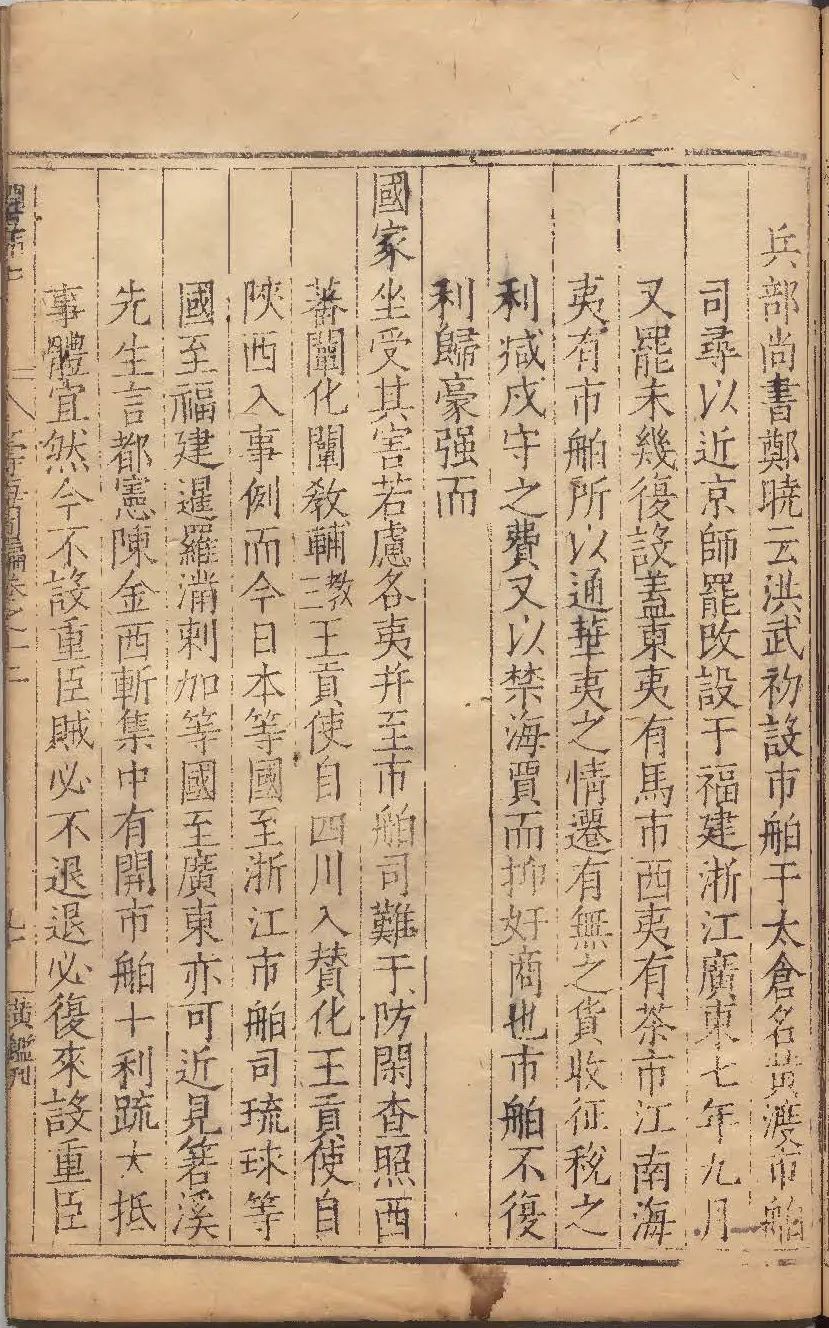 兵部尚書鄭曉云洪武初設市舶于太倉名黃渡市舶
司尋以近京師罷改設于福建浙江廣東七年九月
又罷未幾復設蓋東夷有馬市西夷有茶市江南海
夷有市舶所以通華夷之情遷有無之貨收征稅之
利減戍守之費又以禁海賈而抑奸商也市舶不復
利歸豪强而
國家坐受其害若慮各夷并至市舶司難于防閑查照西
蕃闡化闡教輔教三王貢使自四川入贊化王貢使自
陝西入事例而今日本等國至浙江市舶司琉球等
國至福建暹羅滿剌加等國至廣東亦可近見箬溪
先生言都憲陳金西斬集中有開市舶十利疏大抵
事體宜然今不設重臣賊必不退退必復來設重臣
卷之十二
黃鑑刊